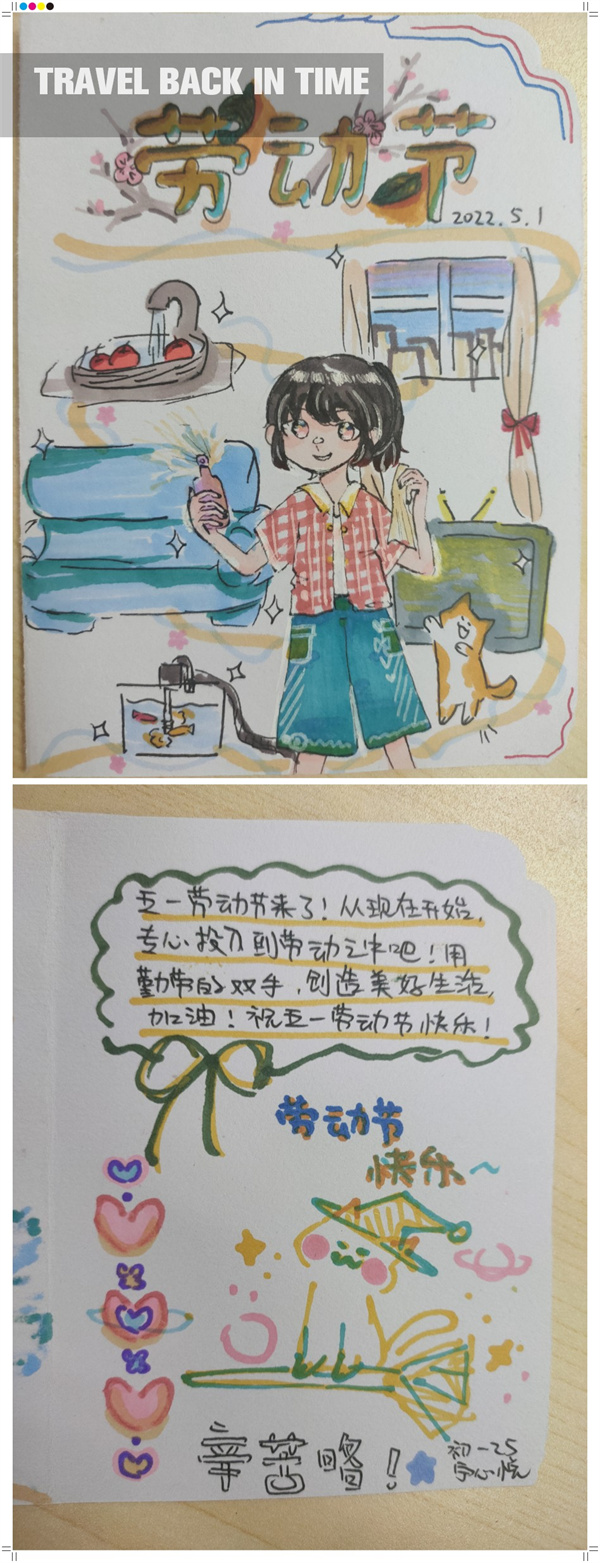 TRAVEL BACK IN TIME
劳动节
2022.5.1
五一劳动节来了！从现在开始，
专心投入到劳动之中吧！用
勤劳的双手，创造美好生活，
加油！祝五一劳动节快乐！
劳动节
快乐～
辛苦咯！
初一25
心悦